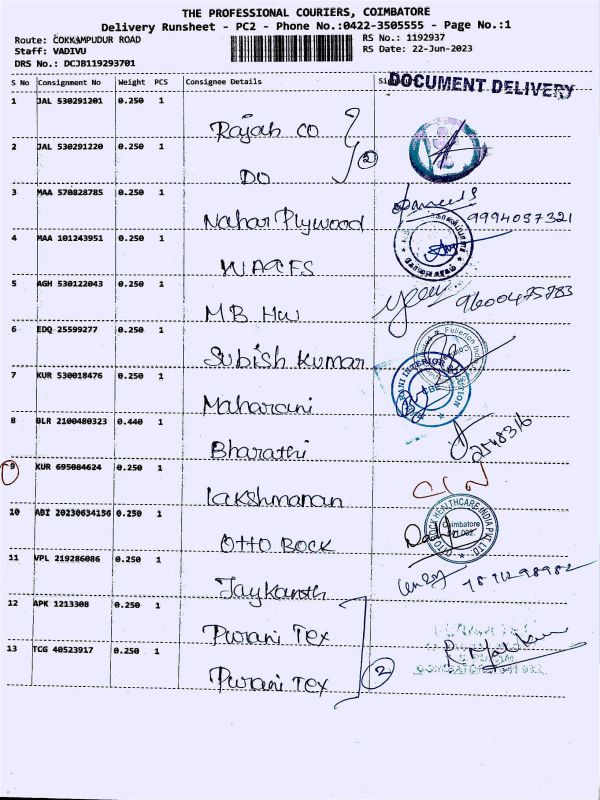 THE PROFESSIONAL COURIERS, COIMBATORE
Delivery Runsheet - PC2 - Phone No.:0422-3505555 - Page No.:1
Route: COKKAMPUDUR ROAD
RS No.: 1192937
Staff: VADIVU
RS Date: 22-Jun-2023
DRS No.: DCJB119293701
S No Consignment No Weight PCS Consignee Details
DOCUMENT DELIVERY
1 JAL 530291201 0.250 1
Rajah co
2 JAL 530291220 0.250 1
2
DO
3 MAA 570828785 0.250 1
Nahar Plywood
9994057321
4 MAA 101243951 0.250 1
5 AGH 530122043 0.250 1
M.B. HW
9600475783
6 EDQ 25599277 0.250 1
Subish Kumar
Fullerton
7 KUR 530018476 0.250 1
Maharani
INTERIOR
8 BLR 2100480323 0.440 1
2548316
Bharathi
9 KUR 695084624 0.250 1
Lakshmanan
10 ABI 20230634156 0.250 1
OTTO BOCK HEALTHCARE INDIA PVT. LTD.
Coimbatore
OTTO BOCK
11 VPL 219286086 0.250 1
Jaykanth
12 APK 1213308 0.250 1
Purani Tex
13 TCG 40523917 0.250 1
2
Purani Tex